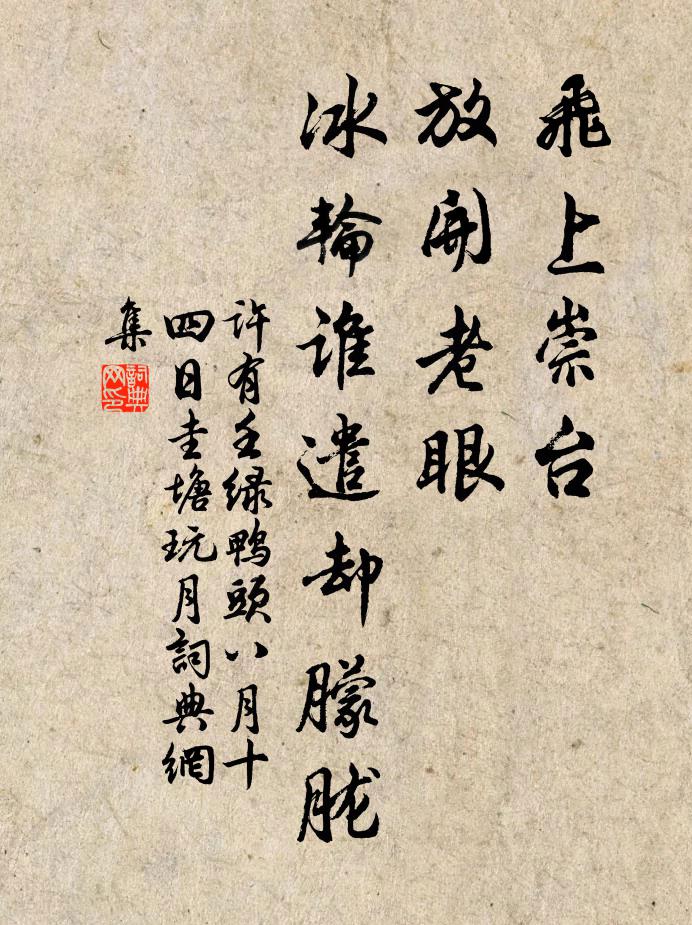 飛上崇台
放開老眼
冰輪誰遣却朦朧
許有壬緑鴨頭八月十
四日圭塘玩月詞典網
集
詞典
网印